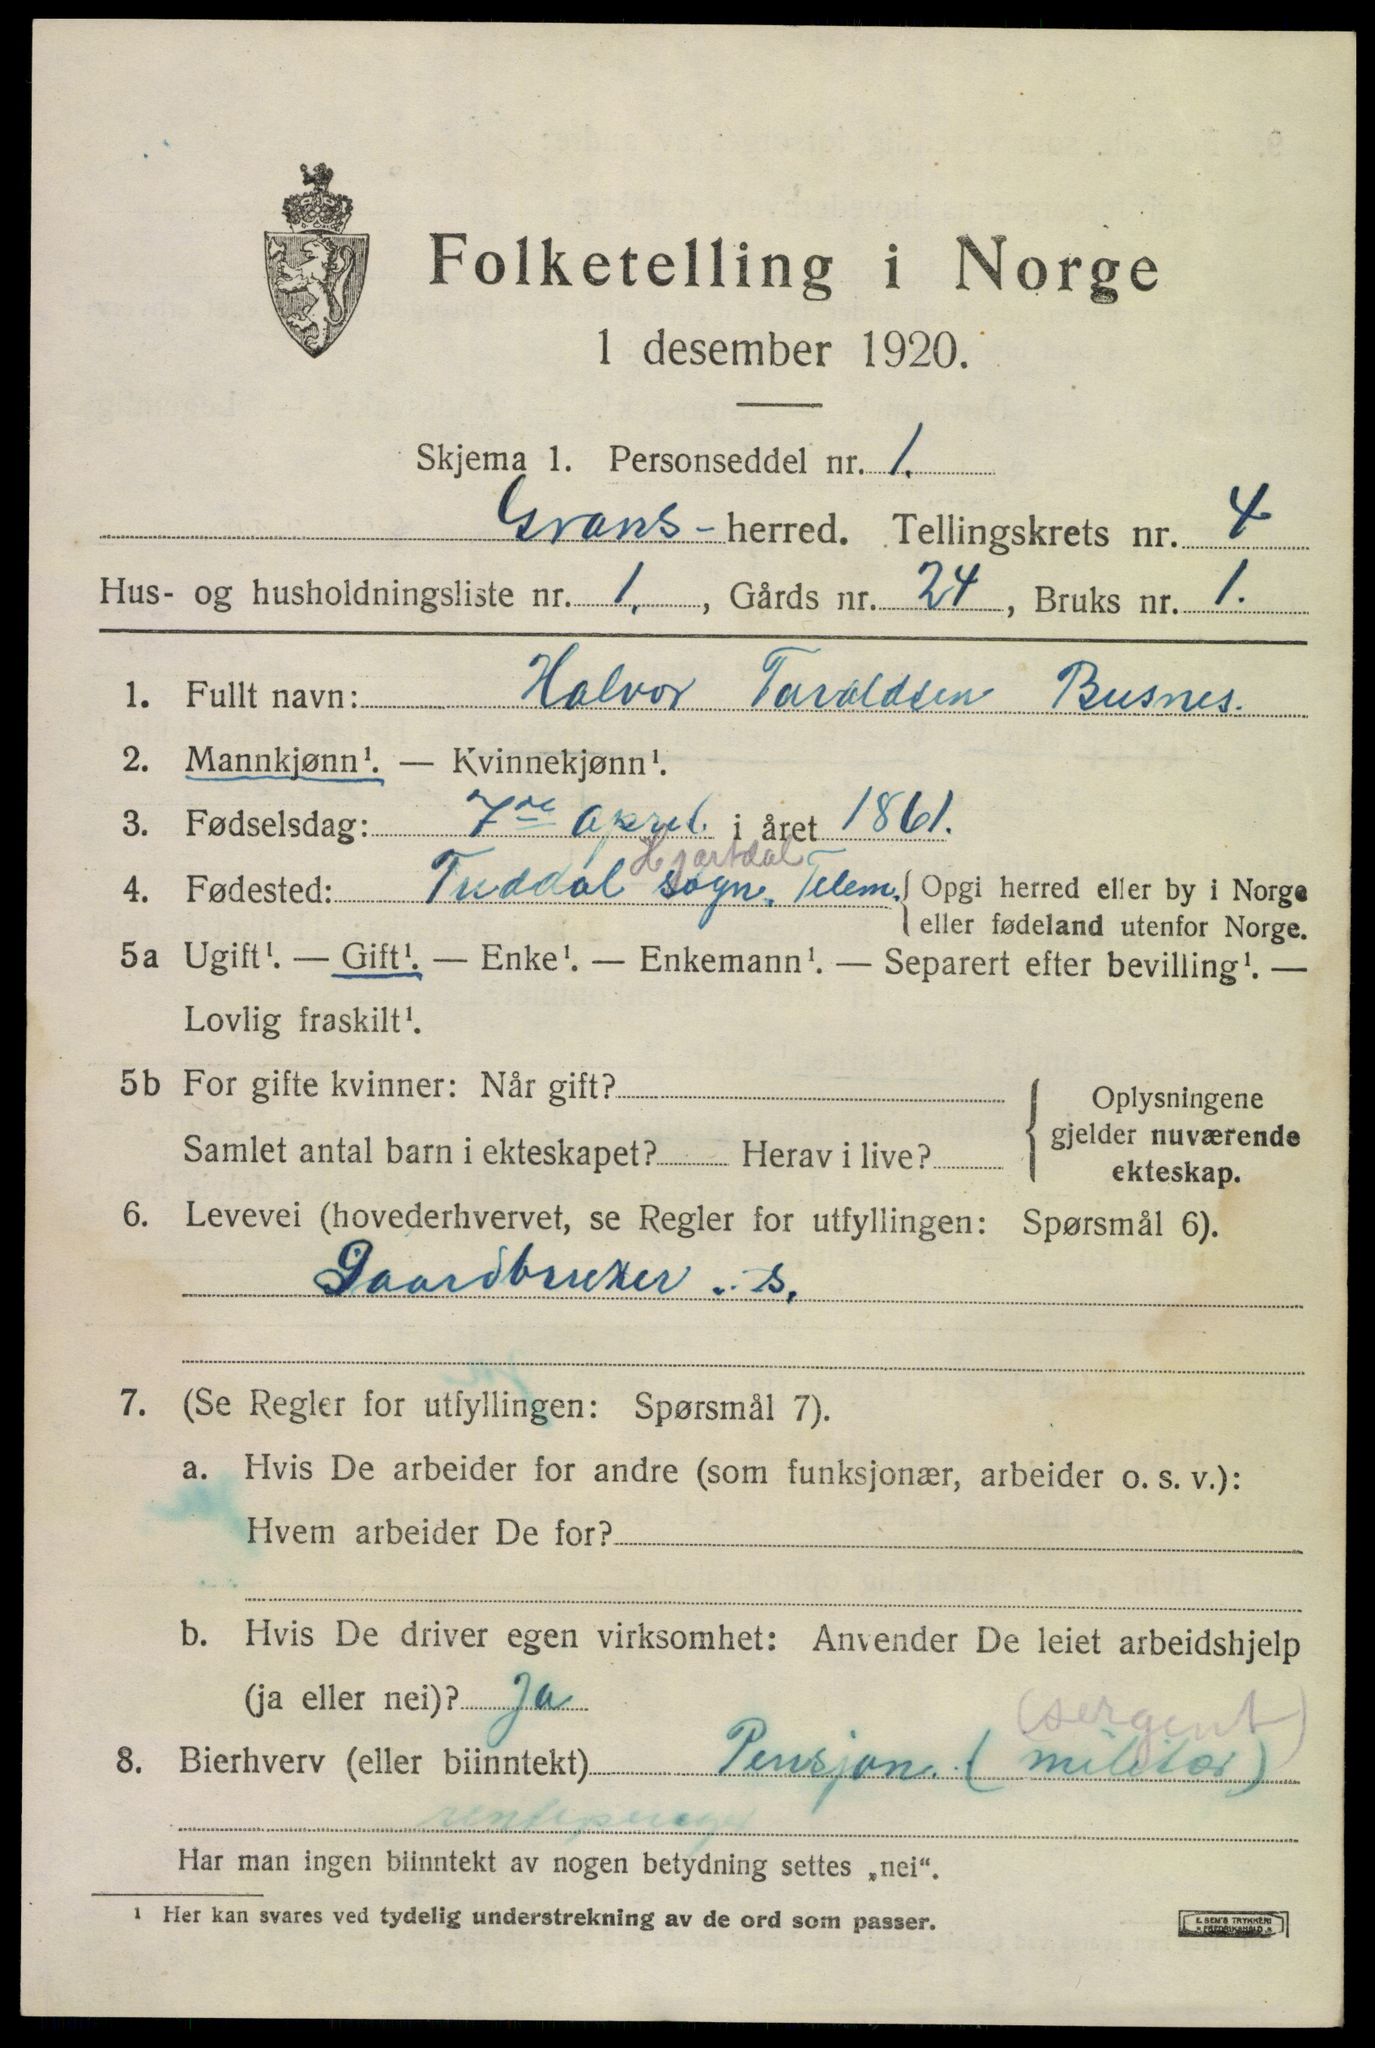 Folketelling i Norge
1 desember 1920.
Skjema 1. Personseddel nr. 1.
Grans- herred. Tellingskrets nr. 4
Hus- og husholdningsliste nr. 1. , Gårds nr. 24 , Bruks nr. 1.
1. Fullt navn: Halvor Taraldsen Busnes.
2. Mannkjønn¹. — Kvinnekjønn¹.
3. Fødselsdag: 7de april i året 1861.
Hjartdal
4. Fødested: Tuddal sogn. Telem. Opgi herred eller by i Norge
eller fødeland utenfor Norge.
5a Ugift¹. — Gift¹. — Enke¹. — Enkemann¹. — Separert efter bevilling¹. —
Lovlig fraskilt¹.
5b For gifte kvinner: Når gift? Oplysningene
gjelder nuværende
Samlet antal barn i ekteskapet? Herav i live?
ekteskap.
6. Levevei (hovederhvervet, se Regler for utfyllingen: Spørsmål 6).
Gaardbruker .. s.
7. (Se Regler for utfyllingen: Spørsmål 7).
a. Hvis De arbeider for andre (som funksjonær, arbeider o. s. v.):
Hvem arbeider De for?
b. Hvis De driver egen virksomhet: Anvender De leiet arbeidshjelp
(ja eller nei)? Ja
(sergent)
8. Bierhverv (eller biinntekt) Pensjon. (militær)
rentepenger
Har man ingen biinntekt av nogen betydning settes „nei“.
¹ Her kan svares ved tydelig understrekning av de ord som passer.
E. SEM'S TRYKKERI
FREDRIKSHALD